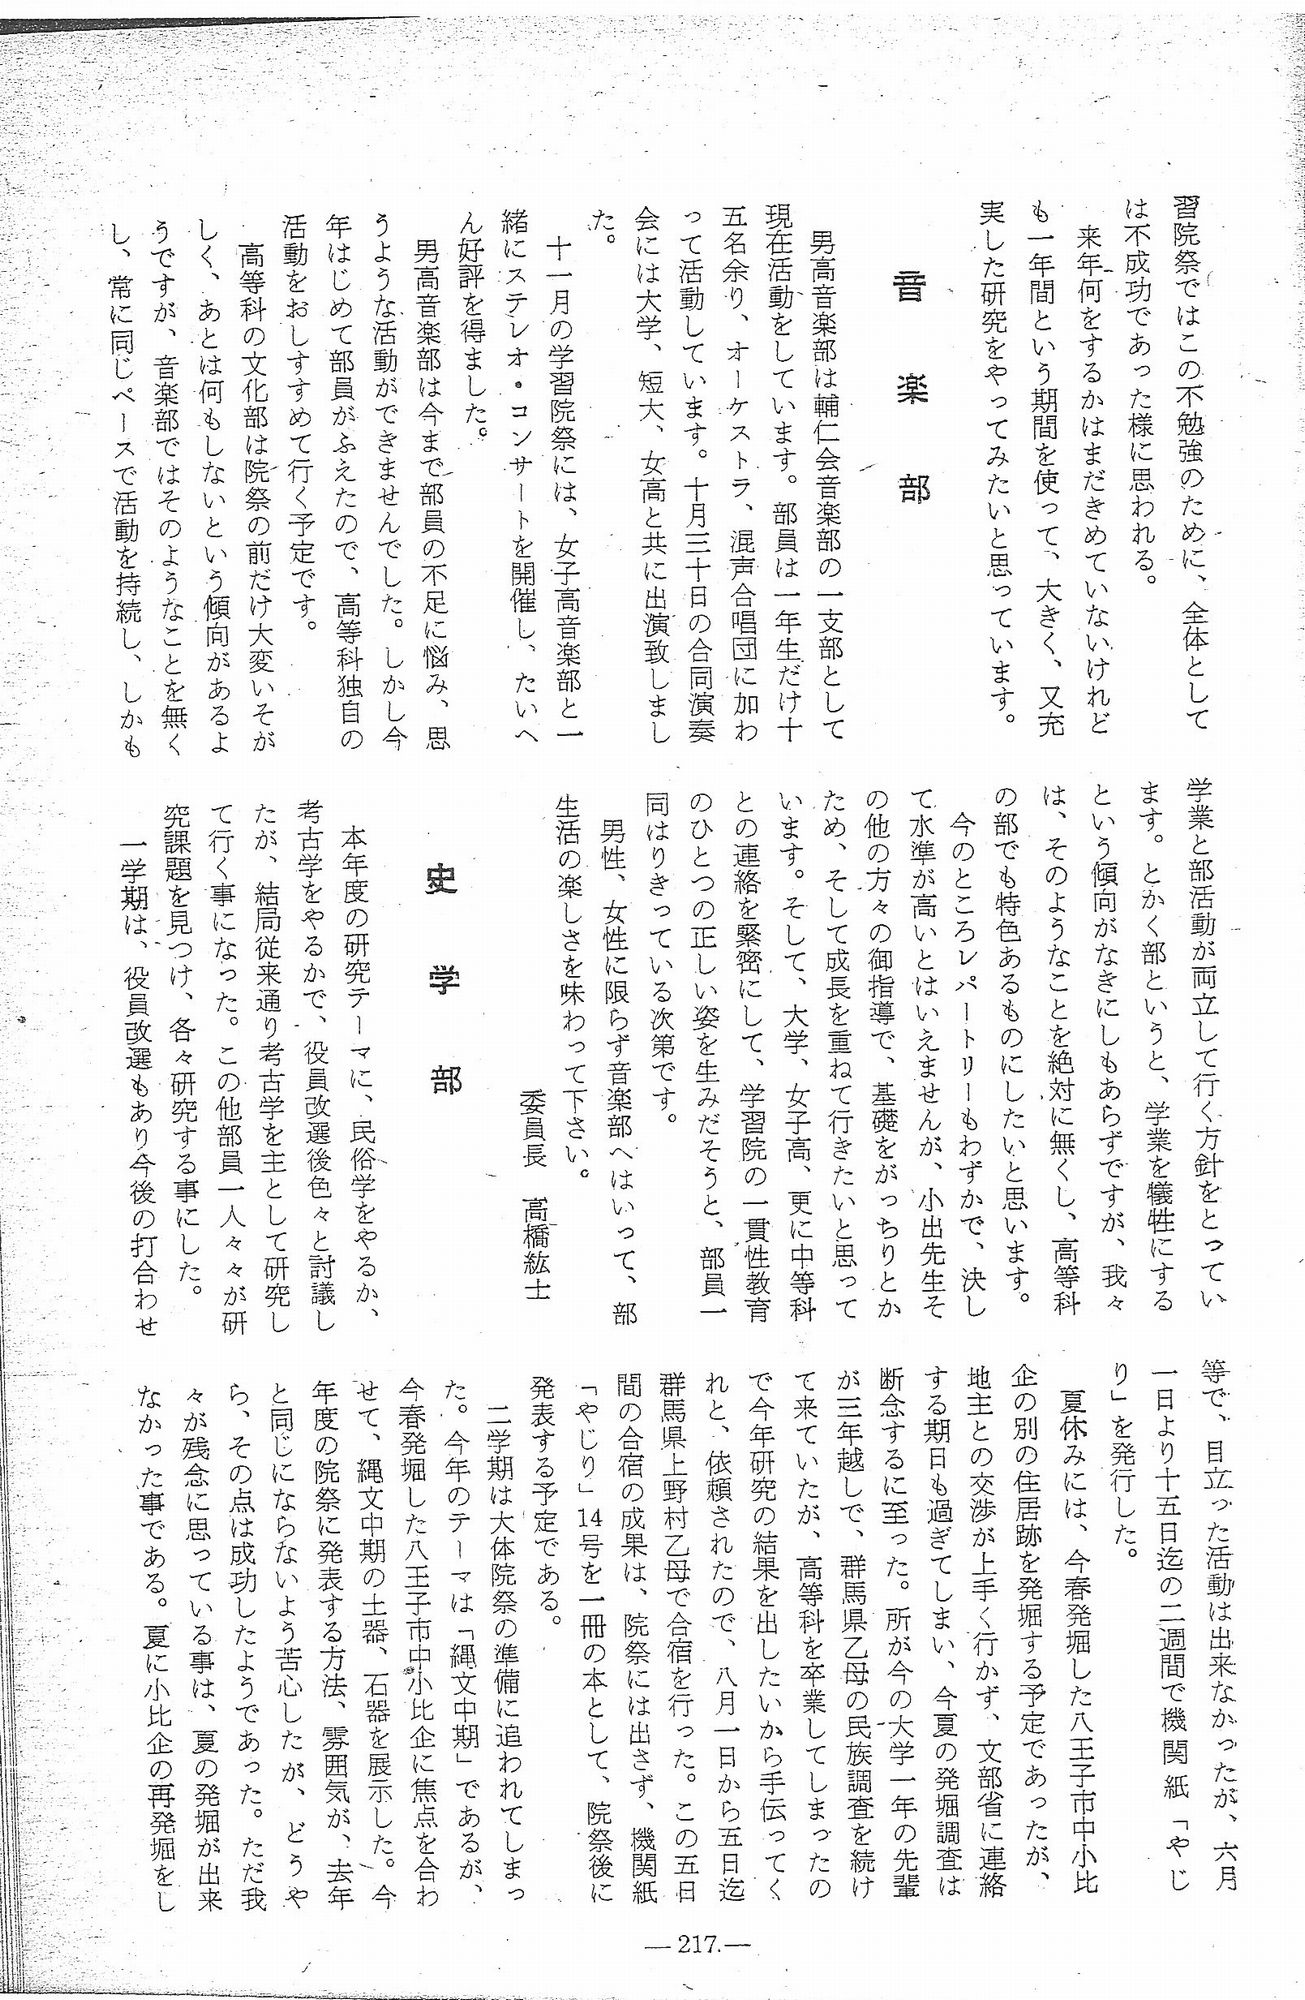 習院祭ではこの不勉強のために、全体として
は不成功であった様に思われる。
来年何をするかはまだきめていないけれど
も一年間という期間を使って、大きく、又充
実した研究をやってみたいと思っています。
音楽部
男高音楽部は輔仁会音楽部の一支部として
現在活動をしています。部員は一年生だけ十
五名余り、オーケストラ、混声合唱団に加わ
って活動しています。十月三十日の合同演奏
会には大学、短大、女高と共に出演致しまし
た。
十一月の学習院祭には、女子高音楽部と一
緒にステレオ・コンサートを開催し、たいへ
ん好評を得ました。
男高音楽部は今まで部員の不足に悩み、思
うような活動ができませんでした。しかし今
年はじめて部員がふえたので、高等科独自の
活動をおしすすめて行く予定です。
高等科の文化部は院祭の前だけ大変いそが
しく、あとは何もしないという傾向があるよ
うですが、音楽部ではそのようなことを無く
し、常に同じペースで活動を持続し、しかも
学業と部活動が両立して行く方針をとってい
ます。とかく部というと、学業を犠牲にする
という傾向がなきにしもあらずですが、我々
は、そのようなことを絶対に無くし、高等科
の部でも特色あるものにしたいと思います。
今のところレパートリーもわずかで、決し
て水準が高いとはいえませんが、小出先生そ
の他の方々の御指導で、基礎をがっちりとか
ため、そして成長を重ねて行きたいと思って
います。そして、大学、女子高、更に中等科
との連絡を緊密にして、学習院の一貫性教育
のひとつの正しい姿を生みだそうと、部員一
同はりきっている次第です。
男性、女性に限らず音楽部へはいって、部
生活の楽しさを味わって下さい。
委員長 高橋紘士
史学部
本年度の研究テーマに、民俗学をやるか、
考古学をやるかで、役員改選後色々と討議し
たが、結局従来通り考古学を主として研究し
て行く事になった。この他部員一人々々が研
究課題を見つけ、各々研究する事にした。
一学期は、役員改選もあり今後の打合わせ
等で、目立った活動は出来なかったが、六月
一日より十五日迄の二週間で機関紙「やじ
り」を発行した。
夏休みには、今春発掘した八王子市中小比
企の別の住居跡を発掘する予定であったが、
地主との交渉が上手く行かず、文部省に連絡
する期日も過ぎてしまい、今夏の発掘調査は
断念するに至った。所が今の大学一年の先輩
が三年越しで、群馬県乙母の民族調査を続け
て来ていたが、高等科を卒業してしまったの
で今年研究の結果を出したいから手伝ってく
れと、依頼されたので、八月一日から五日迄
群馬県上野村乙母で合宿を行った。この五日
間の合宿の成果は、院祭には出さず、機関紙
「やじり」14号を一冊の本として、院祭後に
発表する予定である。
二学期は大体院祭の準備に追われてしまっ
た。今年のテーマは「縄文中期」であるが、
今春発掘した八王子市中小比企に焦点を合わ
せて、縄文中期の土器、石器を展示した。今
年度の院祭に発表する方法、雰囲気が、去年
と同じにならないよう苦心したが、どうや
ら、その点は成功したようであった。ただ我
々が残念に思っている事は、夏の発掘が出来
なかった事である。夏に小比企の再発掘をし
—217.—